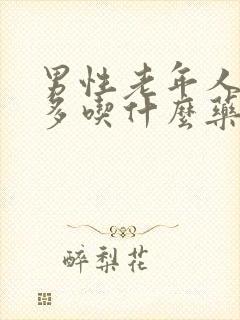 男性老年人
多喫什麼藥
醉梨花